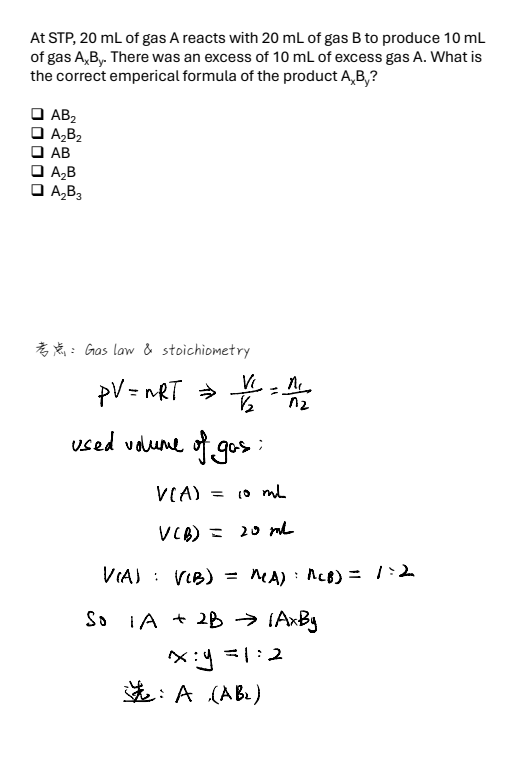 At STP, 20 mL of gas A reacts with 20 mL of gas B to produce 10 mL
of gas AₓBᵧ. There was an excess of 10 mL of excess gas A. What is
the correct emperical formula of the product AₓBᵧ?
❑ AB₂
❑ A₂B₂
❑ AB
❑ A₂B
❑ A₂B₃
考点: Gas law & stoichiometry
pV = nRT ⇒ V₁/V₂ = n₁/n₂
used volume of gas:
V(A) = 10 mL
V(B) = 20 mL
V(A) : V(B) = n(A) : n(B) = 1:2
So 1A + 2B → 1AxBy
x:y = 1:2
选: A (AB₂)